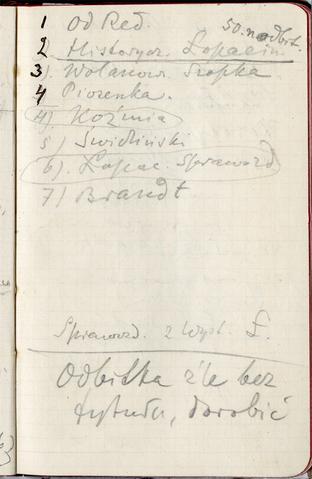 1 Od Red.
50. nadbit.
2 Historycz. Łopacin
3). Wolanow. Szopka
4 Piosenka.
4) Koźmia
5) Świdziński
6). Łopac. Sprawozd
7) Brandt
Sprawozd. z Wyst. Ł.
Odbitka źle bez
tytułu, dorobić